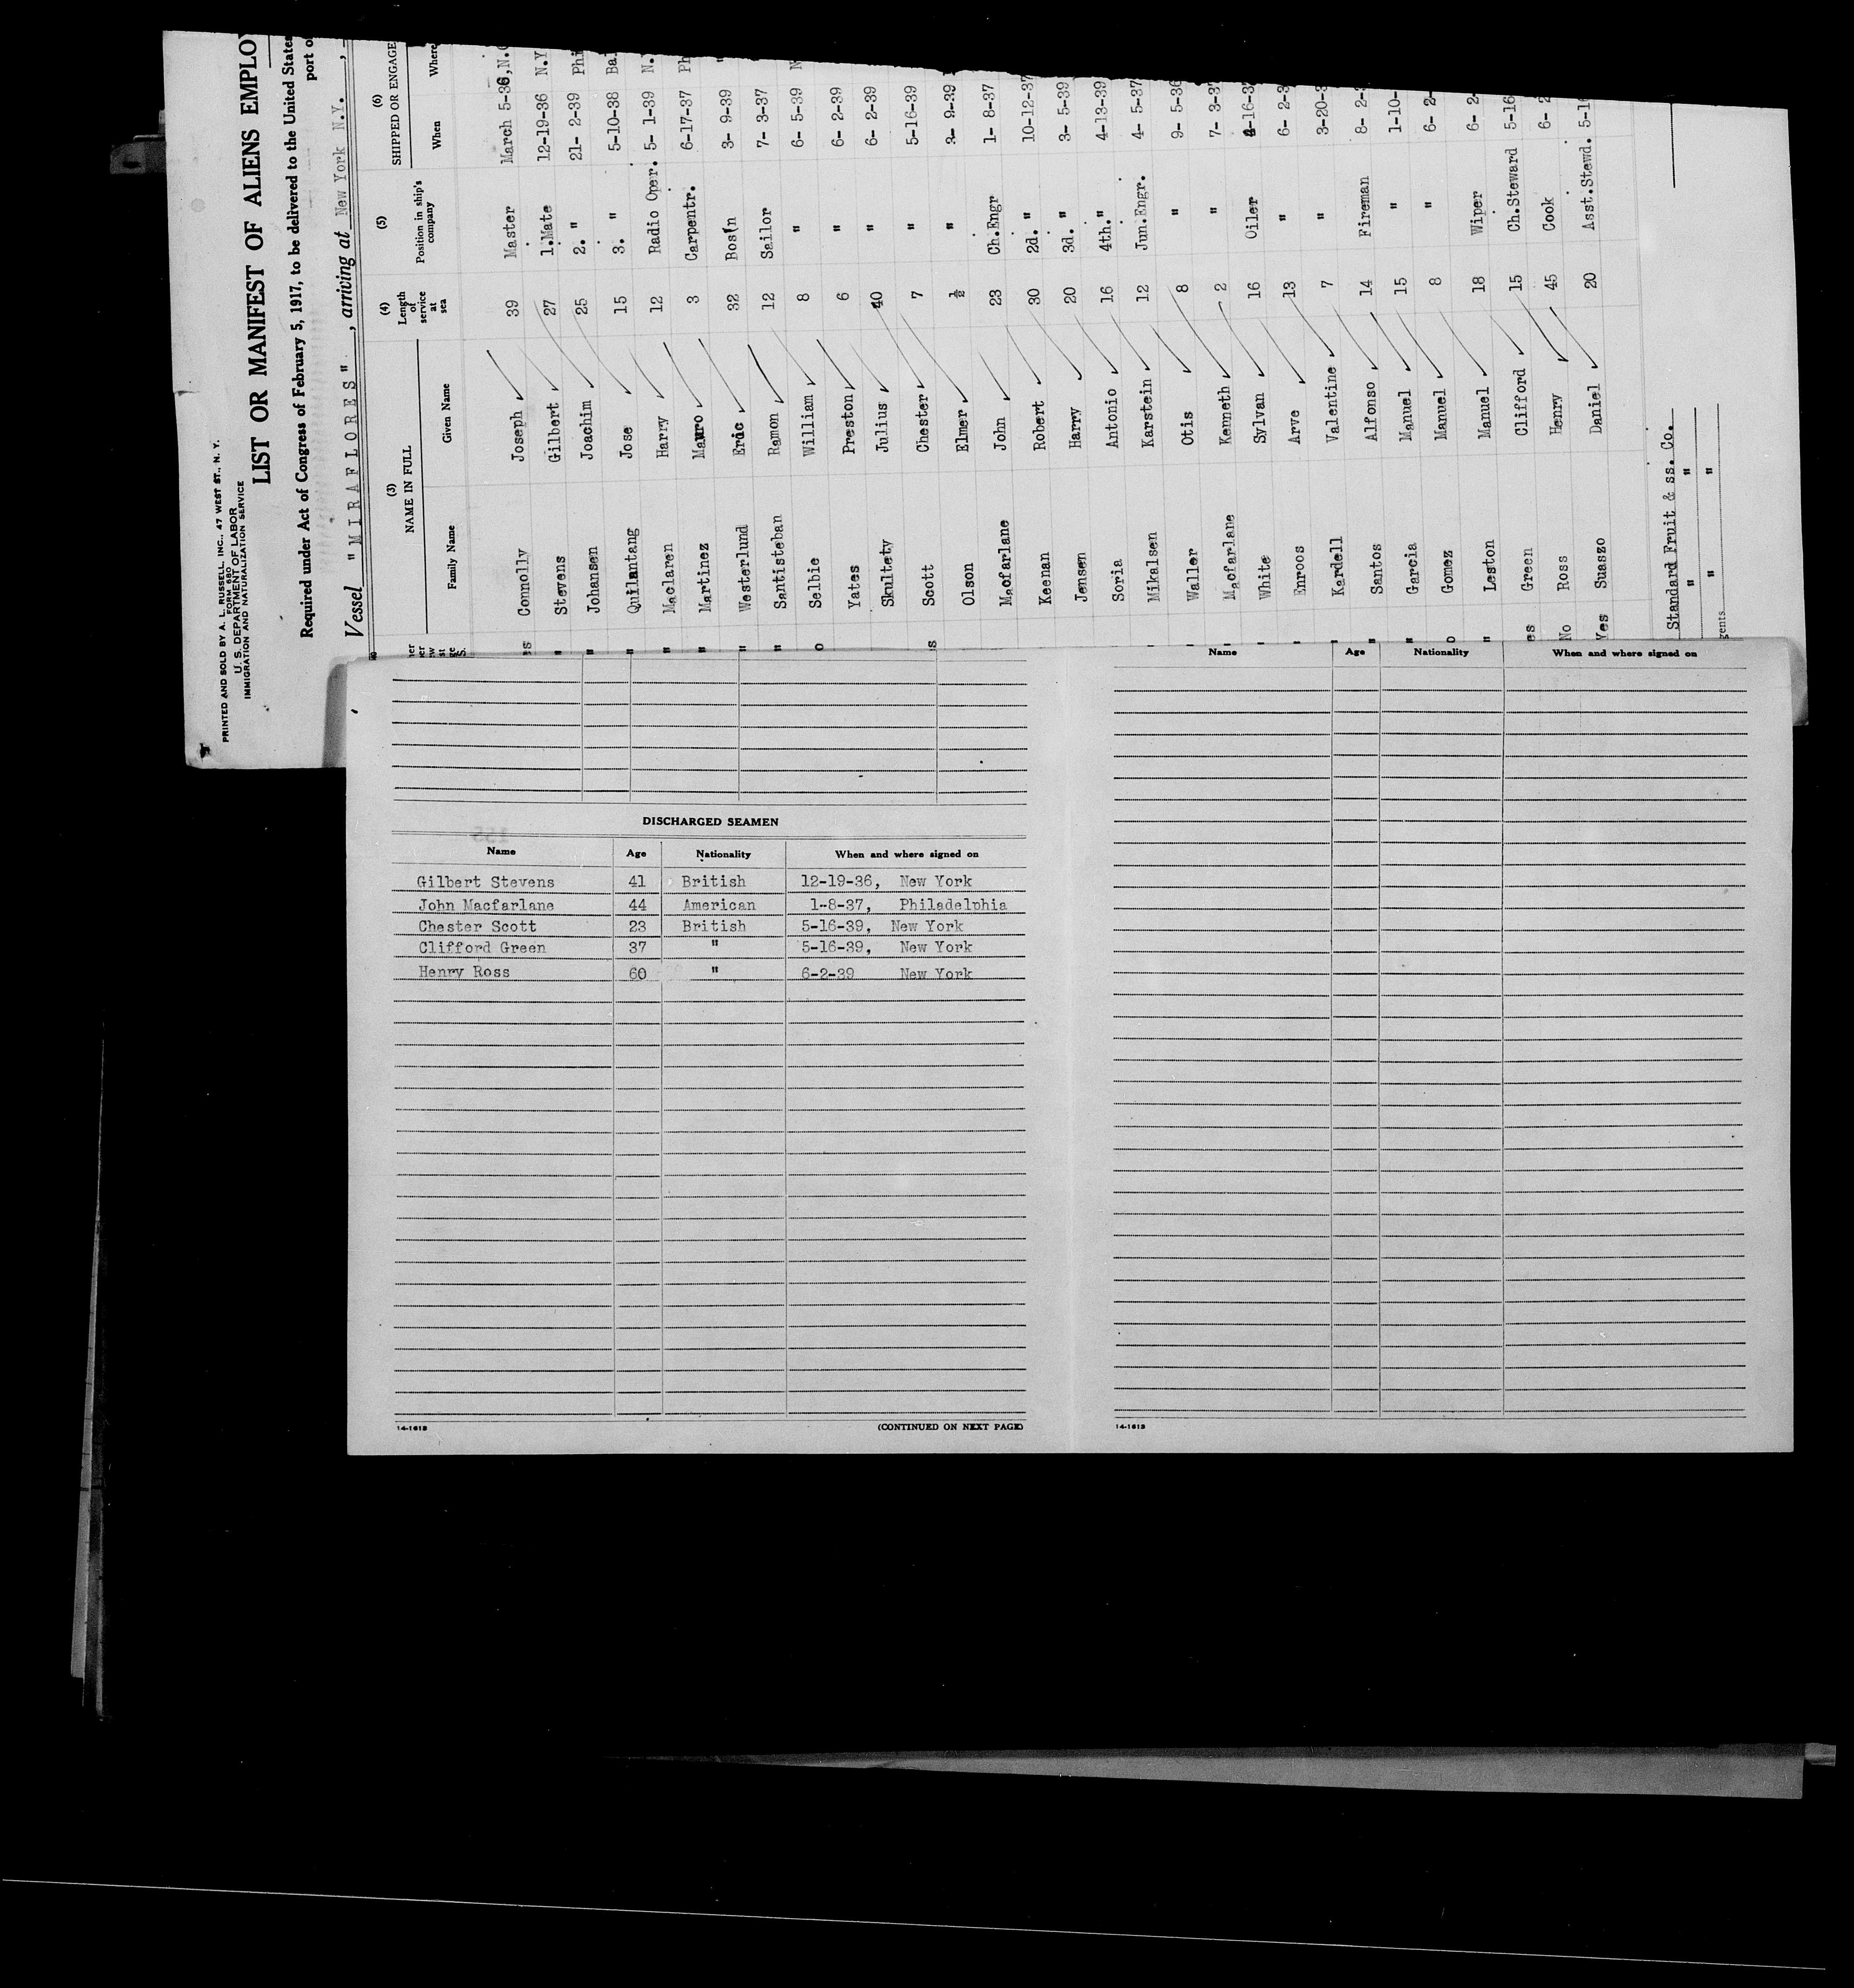 PRINTED AND SOLD BY A. L. RUSSELL, INC., 47 WEST ST., N. Y.
FORM 680
U. S. DEPARTMENT OF LABOR
IMMIGRATION AND NATURALIZATION SERVICE
LIST OR MANIFEST OF ALIENS EMPLO
Required under Act of Congress of February 5, 1917, to be delivered to the United State
port o
Vessel "MIRAFLORES", arriving at New York N.Y.,
(3) (4) (5) (6)
NAME IN FULL Length of service at sea Position in ship's company SHIPPED OR ENGAGE
Family Name Given Name When Where
es Connolly Joseph 39 Master March 5-36, N.
" Stevens Gilbert 27 1.Mate 12-19-36 N.Y
" Johansen Joachim 25 2. " 21- 2-39 Phi
" Quilantang Jose 15 3. " 5-10-38 Ba
" Maclaren Harry 12 Radio Oper. 5- 1-39 N.
" Martinez Mauro 3 Carpentr. 6-17-37 Ph
" Westerlund Eric 32 Bos'n 3- 9-39 "
" Santisteban Ramon 12 Sailor 7- 3-37
o Selbie William 8 " 6- 5-39 N
Yates Preston 6 " 6- 2-39
Skultety Julius 40 " 6- 2-39
s Scott Chester 7 " 5-16-39
Olson Elmer ½ " 3- 9-39
Macfarlane John 23 Ch.Engr 1- 8-37
Keenan Robert 30 2d. " 10-12-37
Jensen Harry 20 3d. " 3- 5-39
Soria Antonio 16 4th. " 4-13-39
Mikalsen Karstein 12 Jun.Engr. 4- 5-37
Waller Otis 8 " 9- 5-36
Macfarlane Kenneth 2 " 7- 3-37
White Sylvan 16 Oiler -16-3
Enroos Arve 13 " 6- 2-3
Kardell Valentine 7 " 3-20-3
" Santos Alfonso 14 Fireman 8- 2-3
" Garcia Manuel 15 " 1-10-
o Gomez Manuel 8 " 6- 2-
" Leston Manuel 18 Wiper 6- 2-
es Green Clifford 15 Ch.Steward 5-16
No Ross Henry 45 Cook 6- 2
Yes Suaszo Daniel 20 Asst.Stewd. 5-16
Standard Fruit & ss. Co.
" "
" "
gents
DISCHARGED SEAMEN
Name Age Nationality When and where signed on
Gilbert Stevens 41 British 12-19-36, New York
John Macfarlane 44 American 1-8-37, Philadelphia
Chester Scott 23 British 5-16-39, New York
Clifford Green 37 " 5-16-39, New York
Henry Ross 60 " 6-2-39 New York
14-1613 (CONTINUED ON NEXT PAGE)
Name Age Nationality When and where signed on
14-1613